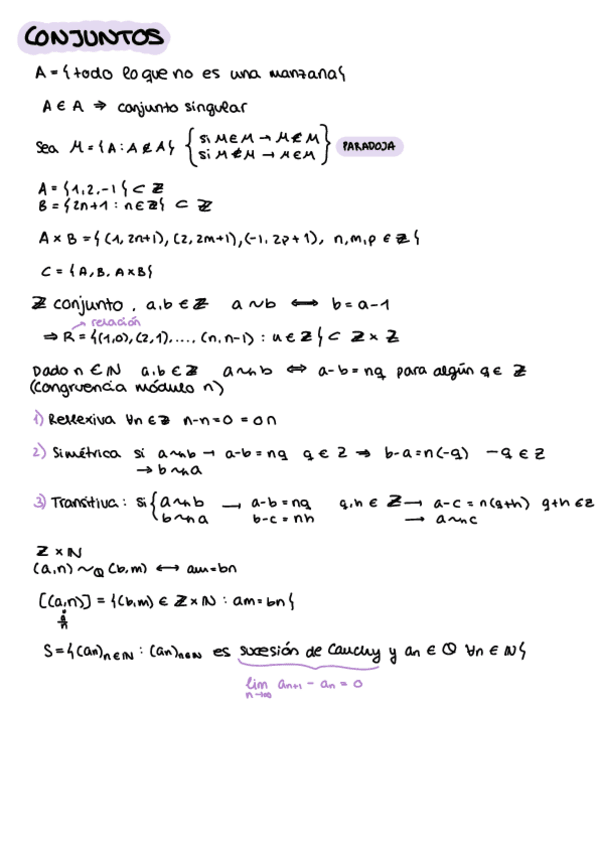 CONJUNTOS
A = {todo lo que no es una manzana}
A ∈ A ⇒ conjunto singular
Sea M = {A : A ∉ A} { si M ∈ M → M ∉ M
si M ∉ M → M ∈ M } PARADOJA
A = {1, 2, -1} ⊂ ℤ
B = {2n+1 : n ∈ ℤ} ⊂ ℤ
A × B = {(1, 2n+1), (2, 2m+1), (-1, 2p+1), n, m, p ∈ ℤ}
C = {A, B, A×B}
ℤ conjunto, a, b ∈ ℤ a ~ b ⟺ b = a - 1
relación
⇒ R = {(1,0), (2,1), ...., (n, n-1) : n ∈ ℤ} ⊂ ℤ × ℤ
Dado n ∈ ℕ a, b ∈ ℤ a ~n b ⟺ a - b = nq para algún q ∈ ℤ
(Congruencia módulo n)
1) Reflexiva ∀n ∈ ℤ n-n = 0 = 0n
2) Simétrica si a ~n b → a-b = nq q ∈ ℤ ⇒ b-a = n(-q) -q ∈ ℤ
→ b ~n a
3) Transitiva: si { a ~n b → a-b = nq q, h ∈ ℤ → a-c = n(q+h) q+h ∈ ℤ
b ~n a b-c = nh → a ~n c
ℤ × ℕ
(a,n) ~ℚ (b,m) ⟷ am = bn
[(a,n)] = {(b,m) ∈ ℤ × ℕ : am = bn}
S = {(an)n∈ℕ : (an)n∈ℕ es sucesión de Cauchy y an ∈ ℚ ∀n ∈ ℕ}
lim n→∞ an+1 - an = 0